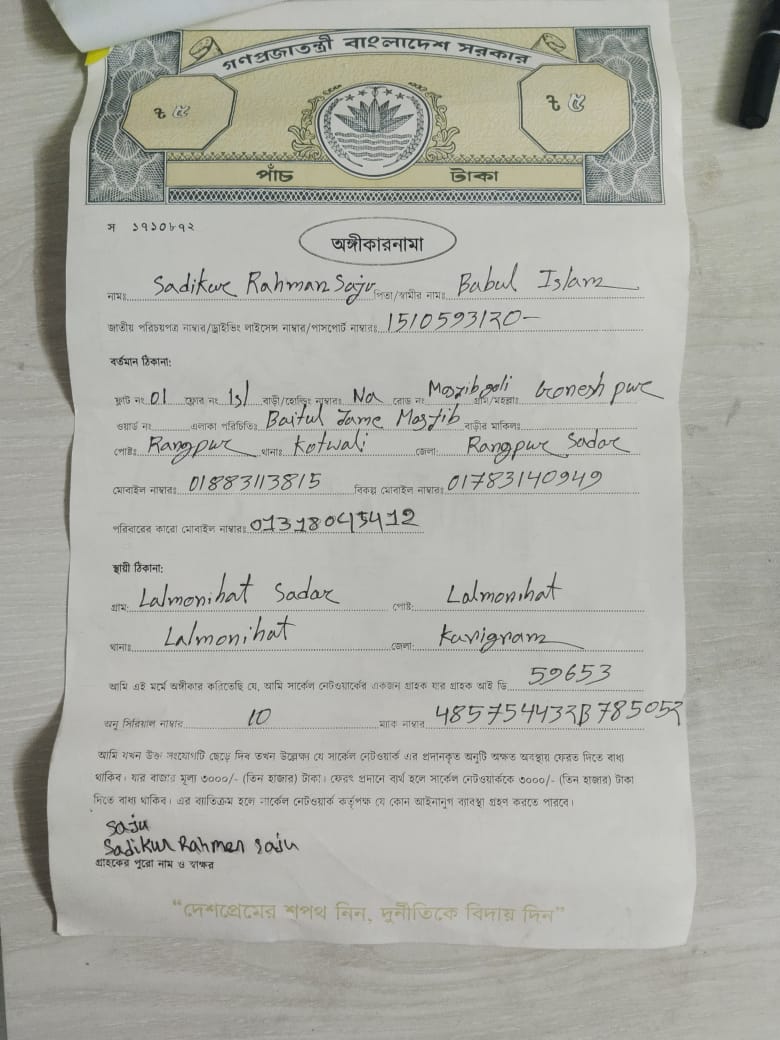 গণপ্রজাতন্ত্রী বাংলাদেশ সরকার
৳ ৫ ৳ ৫
পাঁচ টাকা
স ১৭১০৮৭২
অঙ্গীকারনামা
নামঃ Sadikur Rahman Saju পিতা/স্বামীর নামঃ Babul Islam
জাতীয় পরিচয়পত্র নাম্বার/ড্রাইভিং লাইসেন্স নাম্বার/পাসপোর্ট নাম্বারঃ 1510593120-
বর্তমান ঠিকানা:
ফ্লাট নং 01 ফ্লোর নং 1st বাড়ী/হোল্ডিং নাম্বারঃ No রোড নং Mosjib goli গ্রাম/মহল্লাঃ Gonesh pur
ওয়ার্ড নং এলাকা পরিচিতিঃ Baitul Jame Mosjib বাড়ীর মালিকঃ
পোষ্টঃ Rangpur থানাঃ Kotwali জেলা: Rangpur Sadar
মোবাইল নাম্বারঃ 01883113815 বিকল্প মোবাইল নাম্বারঃ 01783140949
পরিবারের কারো মোবাইল নাম্বারঃ
স্থায়ী ঠিকানা:
গ্রাম: Lalmonihat Sadar পোষ্ট: Lalmonihat
থানাঃ Lalmonihat জেলা: Kurigram
আমি এই মর্মে অঙ্গীকার করিতেছি যে, আমি সার্কেল নেটওয়ার্কের একজন গ্রাহক যার গ্রাহক আই ডি 59653
অনু সিরিয়াল নাম্বার 10 ম্যাক নাম্বার 485754432B785052
আমি যখন উক্ত সংযোগটি ছেড়ে দিব তখন উল্লেক্ষ্য যে সার্কেল নেটওয়ার্ক এর প্রদানকৃত অনুটি অক্ষত অবস্থায় ফেরত দিতে বাধ্য
থাকিব। যার বাজার মূল্য ৩০০০/- (তিন হাজার) টাকা। ফেরৎ প্রদানে ব্যর্থ হলে সার্কেল নেটওয়ার্ককে ৩০০০/- (তিন হাজার) টাকা
দিতে বাধ্য থাকিব। এর ব্যতিক্রম হলে সার্কেল নেটওয়ার্ক কর্তৃপক্ষ যে কোন আইনানুগ ব্যাবস্থা গ্রহণ করতে পারবে।
Saju
Sadikur Rahman Saju
গ্রাহকের পুরো নাম ও স্বাক্ষর
“দেশপ্রেমের শপথ নিন, দুর্নীতিকে বিদায় দিন”